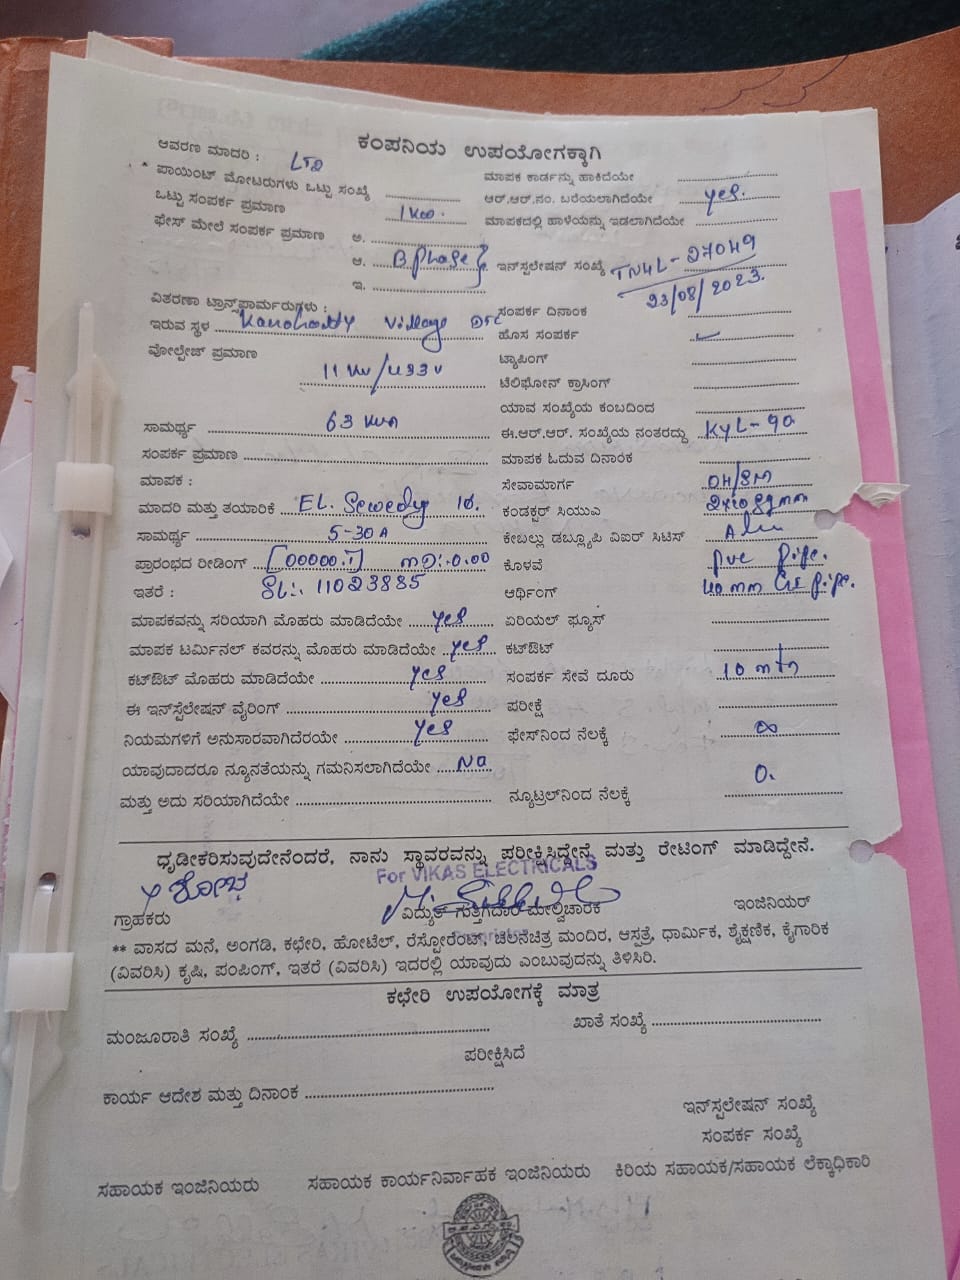 ಕಂಪನಿಯ ಉಪಯೋಗಕ್ಕಾಗಿ
ಆವರಣ ಮಾದರಿ :
ಮಾಪಕ ಕಾರ್ಡನ್ನು ಹಾಕಿದೆಯೇ
* ಪಾಯಿಂಟ್ ಮೋಟರುಗಳು ಒಟ್ಟು ಸಂಖ್ಯೆ
ಆರ್.ಆರ್.ನಂ. ಬರೆಯಲಾಗಿದೆಯೇ yes.
ಒಟ್ಟು ಸಂಪರ್ಕ ಪ್ರಮಾಣ
ಮಾಪಕದಲ್ಲಿ ಹಾಳೆಯನ್ನು ಇಡಲಾಗಿದೆಯೇ
ಫೇಸ್ ಮೇಲೆ ಸಂಪರ್ಕ ಪ್ರಮಾಣ ಅ.
ಆ. B Phase
ಇನ್‌ಸ್ಟಲೇಷನ್ ಸಂಖ್ಯೆ TN4L-27049
ಇ.
23/08/2023.
ವಿತರಣಾ ಟ್ರಾನ್ಸ್‌ಫಾರ್ಮರುಗಳು :
ಸಂಪರ್ಕ ದಿನಾಂಕ
ಇರುವ ಸ್ಥಳ Village
ಹೊಸ ಸಂಪರ್ಕ
ವೋಲ್ಟೇಜ್ ಪ್ರಮಾಣ
ಟ್ಯಾಪಿಂಗ್
ಟೆಲಿಫೋನ್ ಕ್ರಾಸಿಂಗ್
ಯಾವ ಸಂಖ್ಯೆಯ ಕಂಬದಿಂದ
ಸಾಮರ್ಥ್ಯ 63 KVA
ಈ.ಆರ್.ಆರ್. ಸಂಖ್ಯೆಯ ನಂತರದ್ದು KYL-90
ಸಂಪರ್ಕ ಪ್ರಮಾಣ
ಮಾಪಕ ಓದುವ ದಿನಾಂಕ
ಮಾಪಕ :
ಸೇವಾಮಾರ್ಗ OH/SM
ಮಾದರಿ ಮತ್ತು ತಯಾರಿಕೆ EL. Sewedy
ಕಂಡಕ್ಟರ್ ಸಿಯುಎ
ಸಾಮರ್ಥ್ಯ 5-30A
ಕೇಬಲ್ಲು ಡಬ್ಲ್ಯೂಪಿ ವಿಐರ್ ಸಿಟಿಸ್ Alu
ಪ್ರಾರಂಭದ ರೀಡಿಂಗ್ [00000.1] MD:-0.00
ಕೊಳವೆ pvc pipe.
ಇತರೆ : SL:. 11023885
ಆರ್ಥಿಂಗ್ 40mm GI pipe.
ಮಾಪಕವನ್ನು ಸರಿಯಾಗಿ ಮೊಹರು ಮಾಡಿದೆಯೇ yes
ಏರಿಯಲ್ ಫ್ಯೂಸ್
ಮಾಪಕ ಟರ್ಮಿನಲ್ ಕವರನ್ನು ಮೊಹರು ಮಾಡಿದೆಯೇ yes
ಕಟ್‌ಔಟ್
ಕಟ್‌ಔಟ್ ಮೊಹರು ಮಾಡಿದೆಯೇ yes
ಸಂಪರ್ಕ ಸೇವೆ ದೂರು 10 mtr
ಈ ಇನ್‌ಸ್ಟೆಲೇಷನ್ ವೈರಿಂಗ್ yes
ಪರೀಕ್ಷೆ
ನಿಯಮಗಳಿಗೆ ಅನುಸಾರವಾಗಿದೆರಯೇ yes
ಫೇಸ್‌ನಿಂದ ನೆಲಕ್ಕೆ ∞
ಯಾವುದಾದರೂ ನ್ಯೂನತೆಯನ್ನು ಗಮನಿಸಲಾಗಿದೆಯೇ No
ಮತ್ತು ಅದು ಸರಿಯಾಗಿದೆಯೇ
ನ್ಯೂಟ್ರಲ್‌ನಿಂದ ನೆಲಕ್ಕೆ 0.
ಧೃಡೀಕರಿಸುವುದೇನೆಂದರೆ, ನಾನು ಸ್ಥಾವರವನ್ನು ಪರೀಕ್ಷಿಸಿದ್ದೇನೆ ಮತ್ತು ರೇಟಿಂಗ್ ಮಾಡಿದ್ದೇನೆ.
For VIKAS ELECTRICALS
ಶೋಭ
ಗ್ರಾಹಕರು ವಿದ್ಯುತ್ ಗುತ್ತಿಗೆದಾರ ಮೇಲ್ವಿಚಾರಕ ಇಂಜಿನಿಯರ್
** ವಾಸದ ಮನೆ, ಅಂಗಡಿ, ಕಛೇರಿ, ಹೋಟೆಲ್, ರೆಸ್ಟೋರೆಂಟ್, ಚಲನಚಿತ್ರ ಮಂದಿರ, ಆಸ್ಪತ್ರೆ, ಧಾರ್ಮಿಕ, ಶೈಕ್ಷಣಿಕ, ಕೈಗಾರಿಕ
(ವಿವರಿಸಿ) ಕೃಷಿ, ಪಂಪಿಂಗ್, ಇತರೆ (ವಿವರಿಸಿ) ಇದರಲ್ಲಿ ಯಾವುದು ಎಂಬುವುದನ್ನು ತಿಳಿಸಿರಿ.
ಕಛೇರಿ ಉಪಯೋಗಕ್ಕೆ ಮಾತ್ರ
ಮಂಜೂರಾತಿ ಸಂಖ್ಯೆ ಖಾತೆ ಸಂಖ್ಯೆ
ಪರೀಕ್ಷಿಸಿದೆ
ಕಾರ್ಯ ಆದೇಶ ಮತ್ತು ದಿನಾಂಕ
ಇನ್‌ಸ್ಟಲೇಷನ್ ಸಂಖ್ಯೆ
ಸಂಪರ್ಕ ಸಂಖ್ಯೆ
ಸಹಾಯಕ ಇಂಜಿನಿಯರು ಸಹಾಯಕ ಕಾರ್ಯನಿರ್ವಾಹಕ ಇಂಜಿನಿಯರು ಕಿರಿಯ ಸಹಾಯಕ/ಸಹಾಯಕ ಲೆಕ್ಕಾಧಿಕಾರಿ